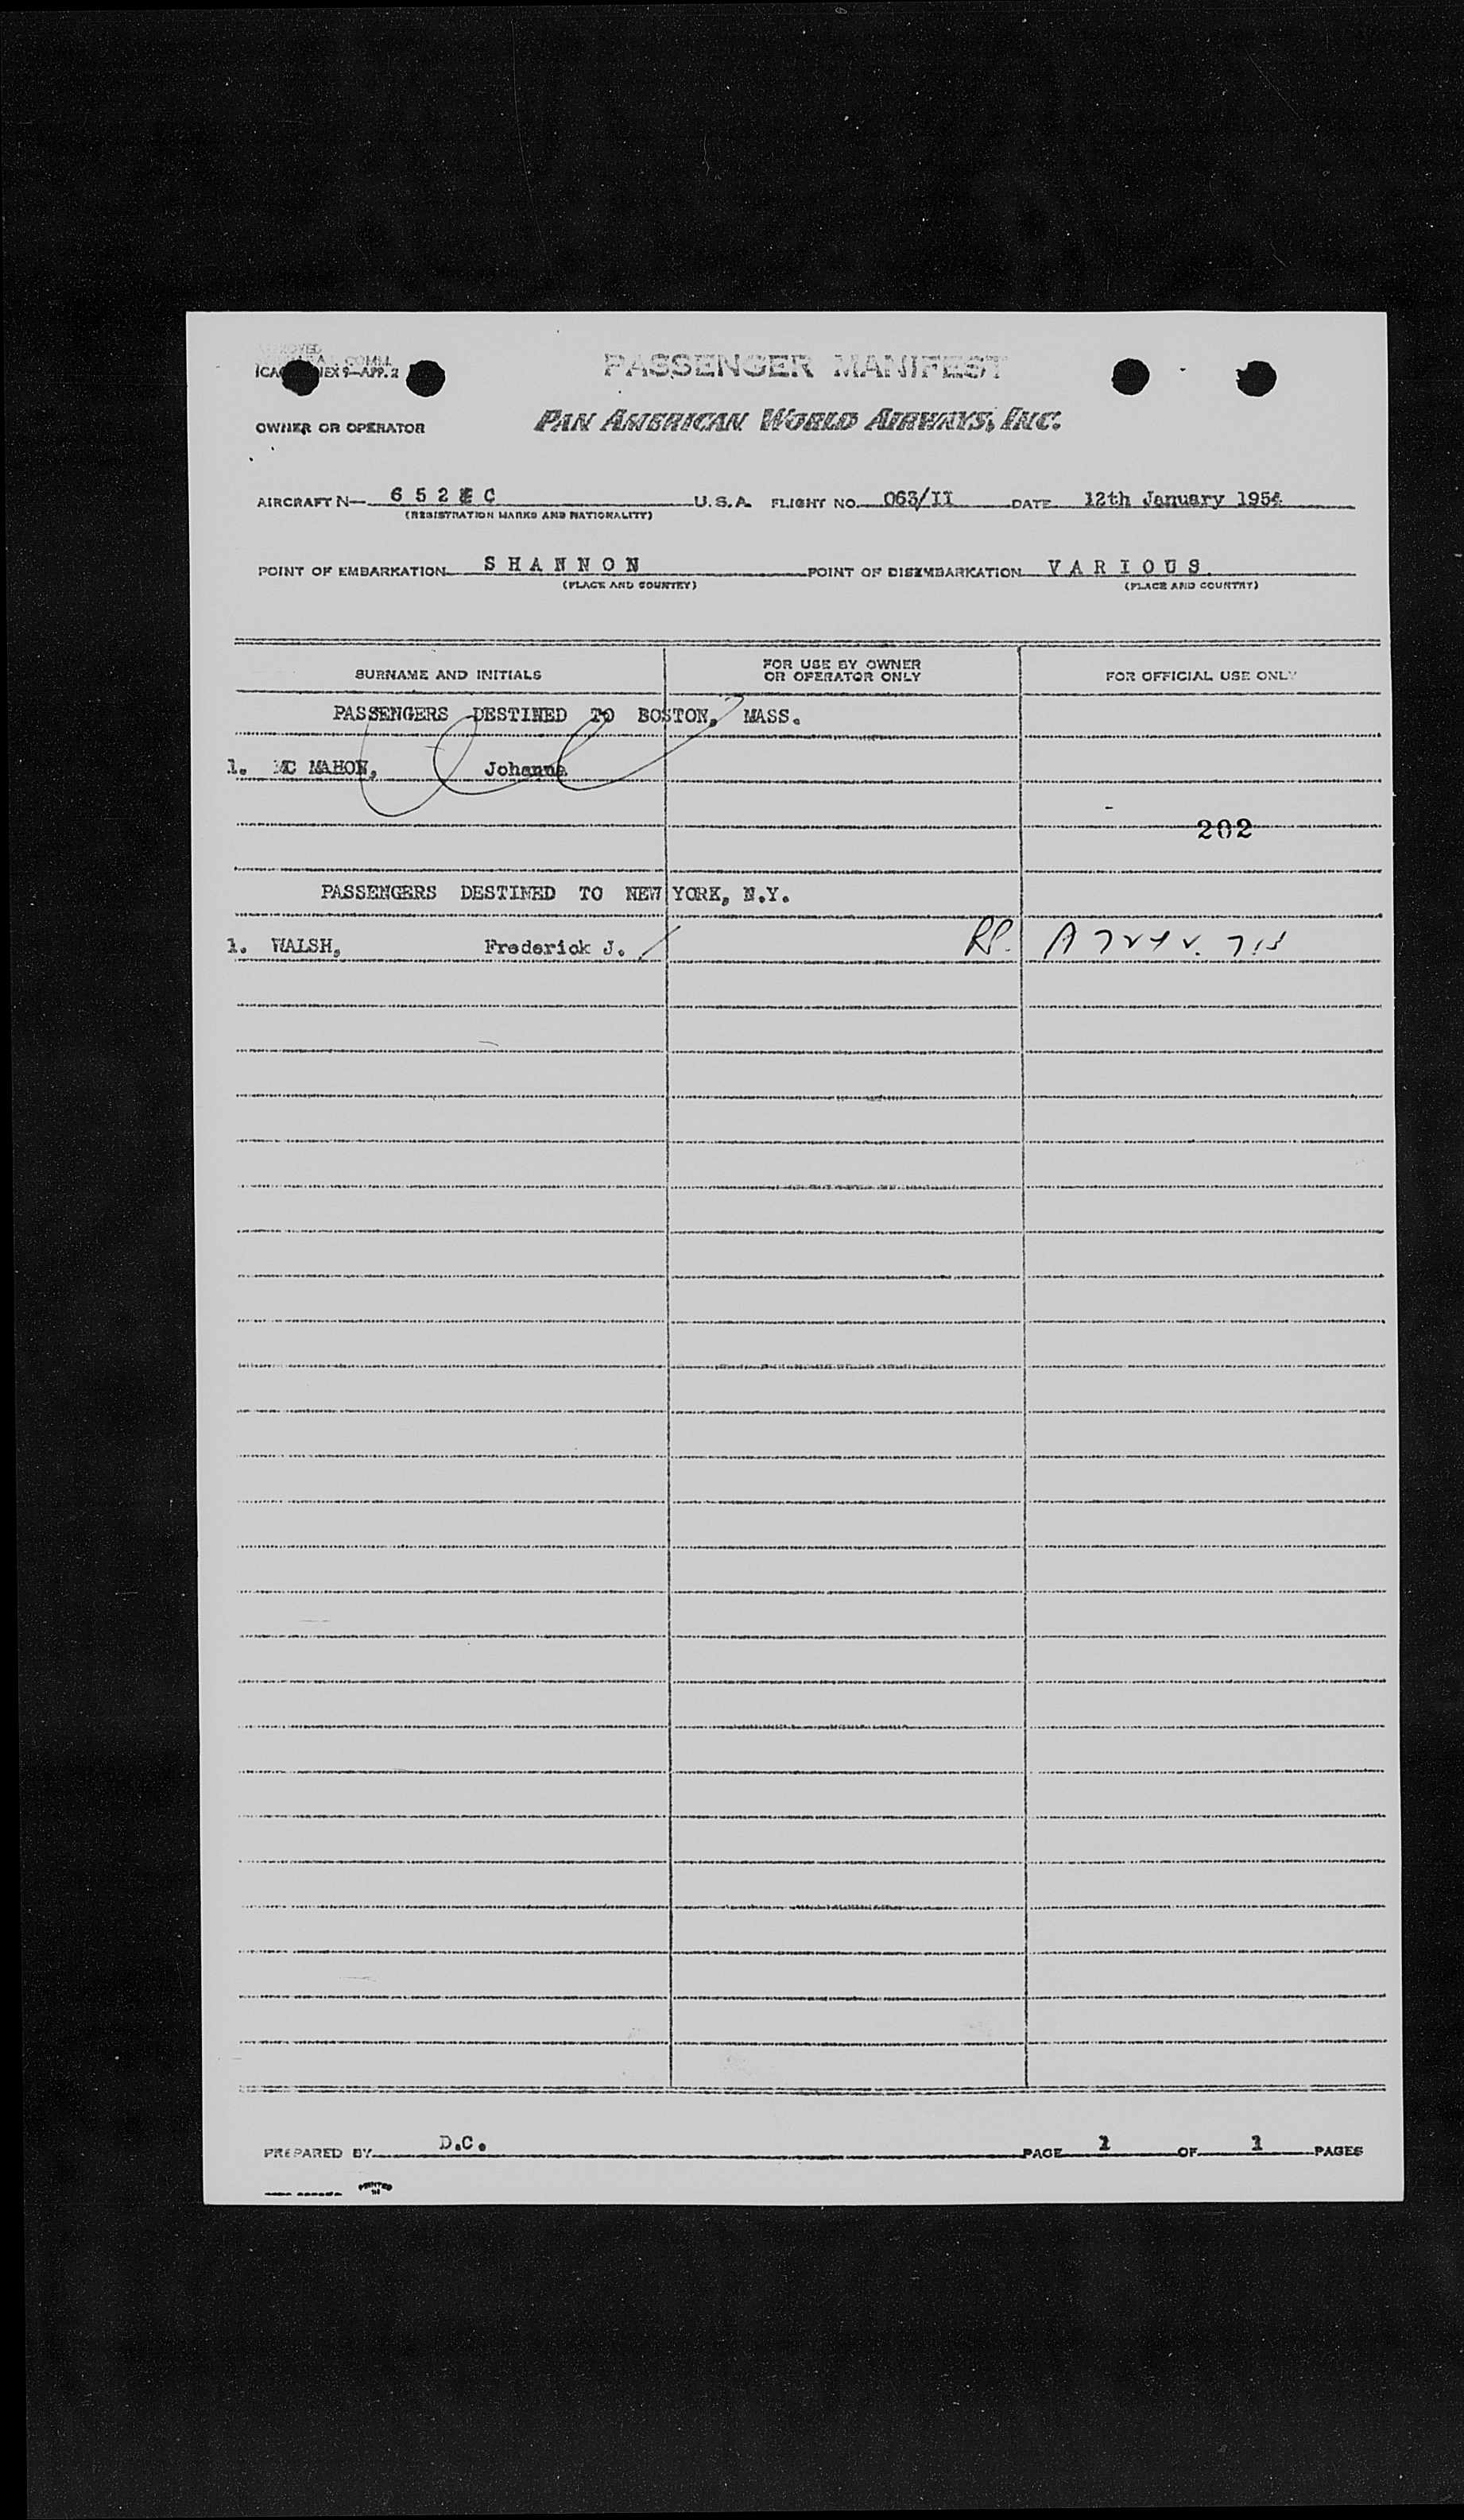 PASSENGER MANIFEST
OWNER OR OPERATOR PAN AMERICAN WORLD AIRWAYS, INC.
AIRCRAFT N— 6 5 2 C U.S.A. FLIGHT NO. 063/II DATE 12th January 1954
(REGISTRATION MARKS AND NATIONALITY)
POINT OF EMBARKATION SHANNON POINT OF DISEMBARKATION VARIOUS
(PLACE AND COUNTRY) (PLACE AND COUNTRY)
SURNAME AND INITIALS FOR USE BY OWNER OR OPERATOR ONLY FOR OFFICIAL USE ONLY
PASSENGERS DESTINED TO BOSTON, MASS.
1. MC MAHON, Johanna
202
PASSENGERS DESTINED TO NEW YORK, N.Y.
1. WALSH, Frederick J.
PREPARED BY D.C. PAGE 1 OF 1 PAGES
PRINTED